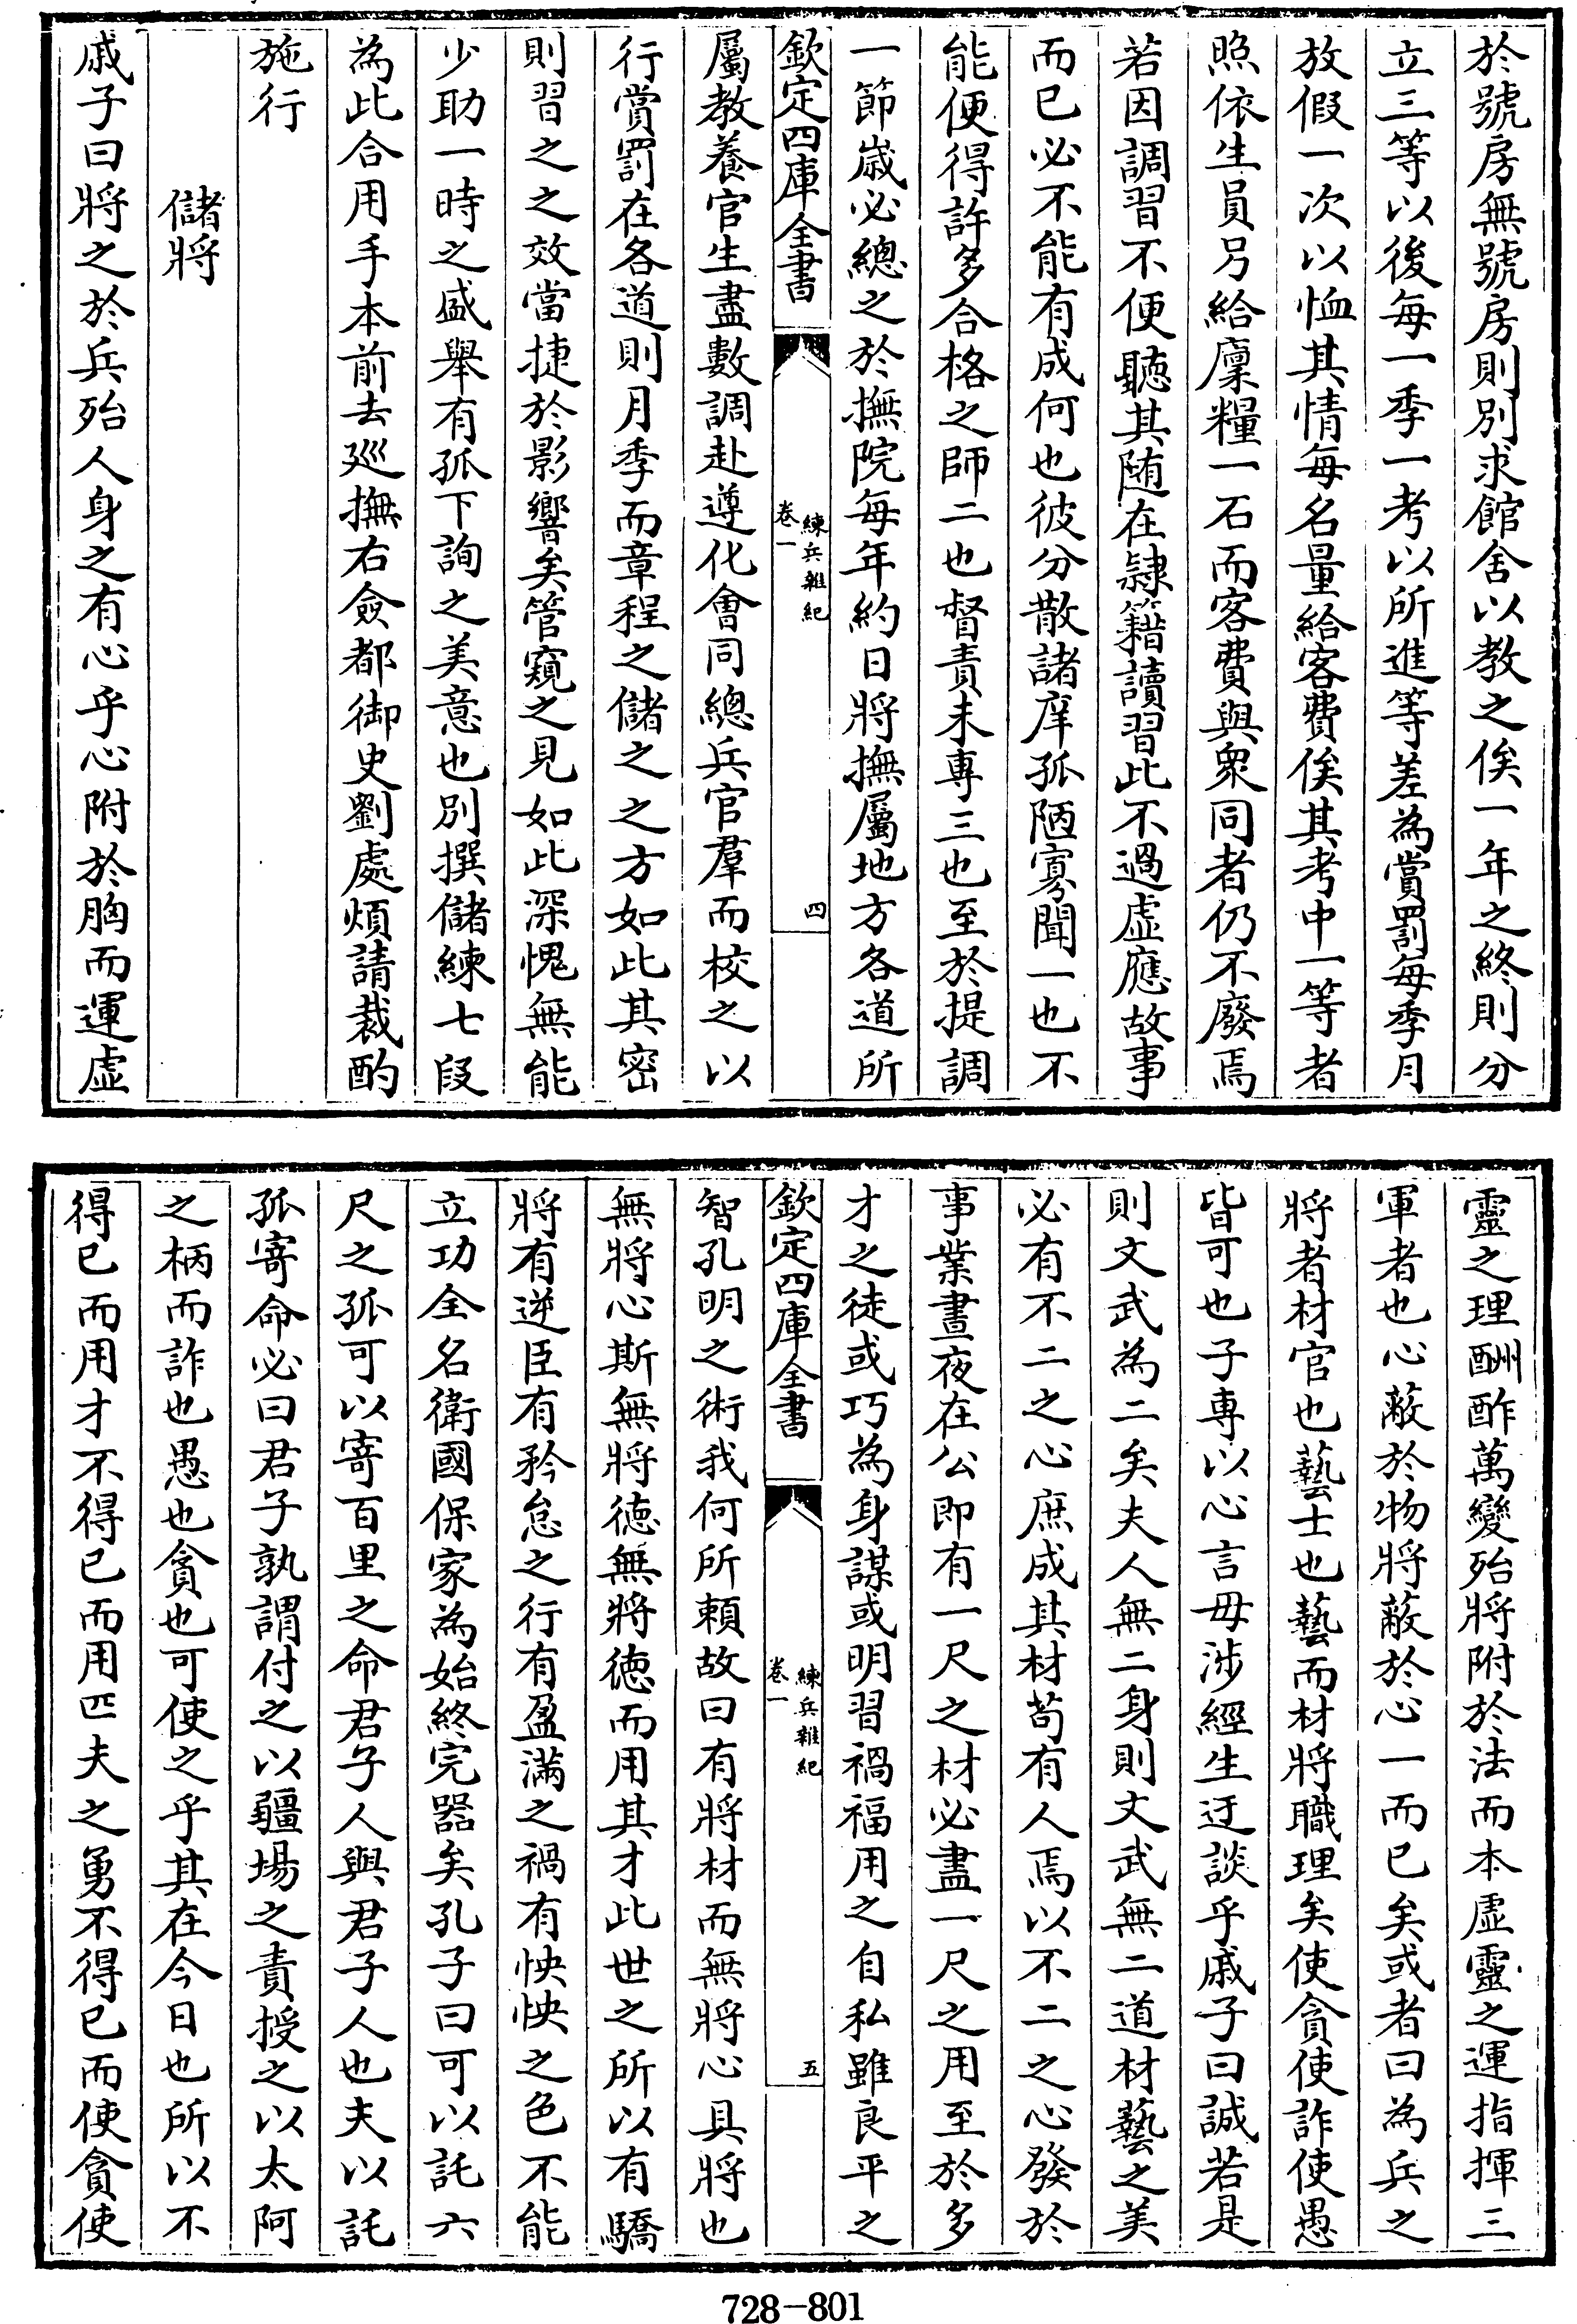 於號房無號房則別求館舍以教之俟一年之終則分
立三等以後每一季一考以所進等差為賞罰每季月
放假一次以恤其情每名量給客費俟其考中一等者
照依生員另給廩糧一石而客費與衆同者仍不廢焉
若因調習不便聽其随在隸籍讀習此不過虚應故事
而已必不能有成何也彼分散諸庠孤陋寡聞一也不
能便得許多合格之師二也督責未專三也至於提調
一節嵗必總之於撫院每年約日將撫屬地方各道所
欽定四庫全書
練兵雜紀
卷一
四
屬教養官生盡數調赴遵化會同總兵官羣而校之以
行賞罰在各道則月季而章程之儲之之方如此其密
則習之之效當捷於影響矣管窺之見如此深愧無能
少助一時之盛舉有孤下詢之美意也別撰儲練七段
為此合用手本前去廵撫右僉都御史劉處煩請裁酌
施行
儲將
戚子曰將之於兵殆人身之有心乎心附於胸而運虚
靈之理酬酢萬變殆將附於法而本虚靈之運指揮三
軍者也心蔽於物將蔽於心一而已矣或者曰為兵之
將者材官也藝士也藝而材將職理矣使貪使詐使愚
皆可也子專以心言毋涉經生迂談乎戚子曰誠若是
則文武為二矣夫人無二身則文武無二道材藝之美
必有不二之心庶成其材苟有人焉以不二之心發於
事業晝夜在公即有一尺之材必盡一尺之用至於多
才之徒或巧為身謀或明習禍福用之自私雖良平之
欽定四庫全書
練兵雜紀
卷一
五
智孔明之術我何所頼故曰有將材而無將心具將也
無將心斯無將徳無將徳而用其才此世之所以有驕
將有逆臣有矜怠之行有盈滿之禍有怏怏之色不能
立功全名衛國保家為始終完器矣孔子曰可以託六
尺之孤可以寄百里之命君子人與君子人也夫以託
孤寄命必曰君子孰謂付之以疆埸之責授之以太阿
之柄而詐也愚也貪也可使之乎其在今日也所以不
得已而用才不得已而用匹夫之勇不得已而使貪使
728-801